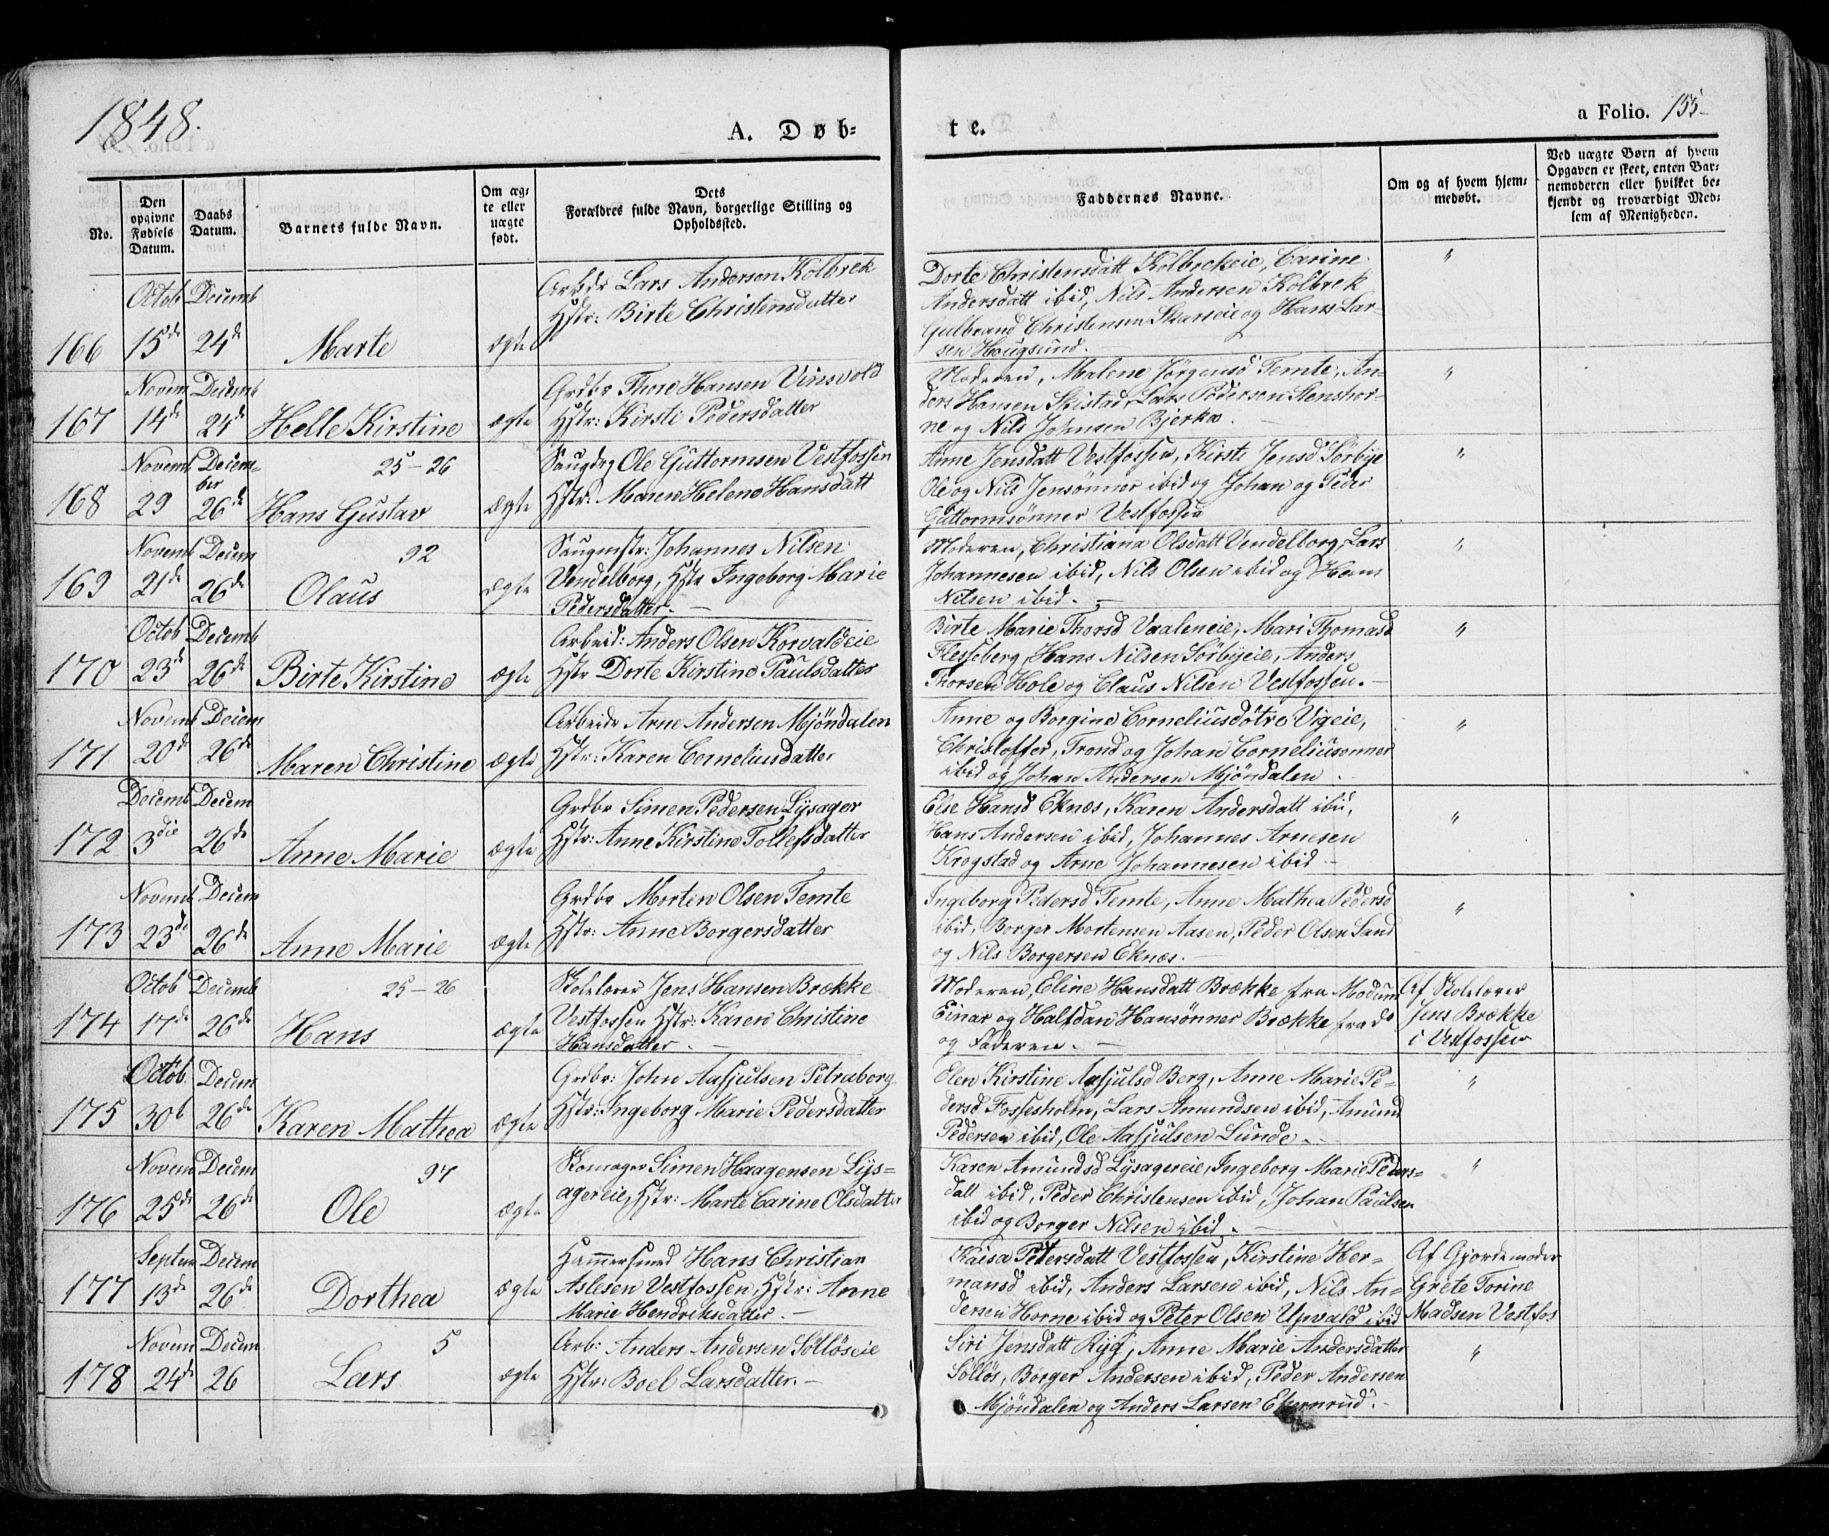 1848.
A. Døb-
te.
a Folio. 155
No.
Den opgivne Fødsels Datum.
Daabs Datum.
Barnets fulde Navn.
Om ægte eller uægte født.
Dets Forældres fulde Navn, borgerlige Stilling og Opholdssted.
Faddernes Navne.
Om og af hvem hjemmedøbt.
Ved uægte Børn af hvem
Opgaven er skeet, enten Bar-
nemoderen eller hvilket be-
kjendt og troværdigt Med-
lem af Menigheden.
Octob Decemb
166 15de 24de Marte ægte
Arbdr Lars Andersen Kolbrek
Hstr: Birte Christensdatter
Dorte Christensdatt Kolbrekeie, Carine
Andersdatt ibid, Nils Andersen Kolbrek
Gulbrand Christensen Skarseie og Hans Lar-
sen Hougsund. "
Novem Decemb
167 14de 24de Helle Kirstine ægte
Grdbr Thore Hansen Vinsvold
Hstr: Kirsti Pedersdatter
Moderen, Malene Jørgensd Temte, An-
ders Hansen Skistad, Lars Pedersen Stenshor-
ne og Nils Johnsen Bjerka. "
Novemb Decem-
ber 25-26
168 29 26de Hans Gustav ægte
Saugdrg Ole Guttormsen Vestfossen
Hstr: Maren Helene Hansdatt
Anne Jensdatt Vestfossen, Kirsti Jensd Sørbye
Ole og Nils Jensønner ibid og Johan og Peder
Guttormsønner Vestfossen "
Novemb Decem 92
169 21de 26de Olaus ægte
Saugmstr: Johannes Nilsen
Vendelborg, Hstr Ingeborg Marie
Pedersdatter. -
Moderen, Christiana Olsdatt Vendelborg, Lars
Johannesen ibid, Nils Olsen ibid og Hans
Nilsen ibid. - "
Octob Decemb
170 23de 26de Birte Kirstine ægte
Arbeid: Anders Olsen Korvaldeie
Hstr Dorte Kirstine Paulsdatter
Birte Marie Thorsd Vaaleneie, Mari Thomasd
Flesseberg, Hans Nilsen Sørbyeie, Anders
Thorsen Hole og Claus Nilsen Vestfossen. - "
Novemb Decem
171 20de 26de Maren Christine ægte
Arbeide Arne Andersen Mjøndalen
Hstr: Karen Corneliusdatter
Anne og Borgine Corneliusdøtre Vigeie,
Christoffer, Trond og Johan Corneliusønner
ibid og Johan Andersen Mjøndalen. "
Decemb Decem
172 3die 26de Anne Marie ægte
Grdbr Simen Pedersen Lysager
Hstr: Anne Kirstine Tollefsdatter
Elie Hansd Eknæs, Karen Andersdatt ibid,
Hans Andersen ibid, Johannes Arnesen
Krogstad og Arne Johannesen ibid - "
Novemb Decem
173 23de 26de Anne Marie ægte
Grdbr Morten Olsen Temte
Hstr: Anne Borgersdatter
Ingeborg Pedersd Temte, Anne Mathea Pedersd
ibid, Borger Mortensen Aasen, Peder Olsen Sand
og Nils Borgersen Eknæs. - "
Octob Decemb 25-26
174 17de 26de Hans ægte
Skolelærer Jens Hansen Brække
Vestfossen Hstr: Karen Christine
Hansdatter. -
Moderen, Eline Hansdatt Brække fra Modum
Einar og Halfdan Hansønner Brække fra do
og Faderen. -
Af Skolelærer
Jens Brække
i Vestfossen
Octob Decem
175 30t 26de Karen Mathea ægte
Grdbr: John Aasjulsen Petraborg
Hstr: Ingeborg Marie Pedersdatter
Elen Kirstine Aasjulsd Berg, Anne Marie Pe-
dersd Fossesholm, Lars Amundsen ibid, Amund
Pedersen ibid, Ole Aasjulsen Lunde. - "
Novem Decem 97
176 25de 26de Ole ægte
Skomager Simen Haagensen Lys-
agereie, Hstr: Marte Carine Olsdatter
Karen Amundsd Lysagereie, Ingeborg Marie Peders-
datt ibid, Peder Christensen ibid, Johan Paulsen
ibid og Borger Nilsen ibid. - "
Septem Decem
177 13de 26de Dorthea ægte
Hammersmed Hans Christian
Aslesen Vestfossen, Hstr: Anne
Marie Hendriksdatter -
Kaisa Petersdatt Vestfossen, Kirstine Her-
mansd ibid, Anders Larsen ibid, Nils An-
dersen Horne ibid og Peter Olsen Upvald ibid
Af Gjordemoder
Grete Torine
Madsen Vestfos
Novem Decem 5
178 24de 26 Lars ægte
Arb: Anders Andersen Solløseie
Hstr: Boel Larsdatter. -
Siri Jensdatt Ryg, Anne Marie Andersdatter
Solløs, Borger Andersen ibid, Peder Andersen
Mjøndalen og Anders Larsen Ekernrud. - "